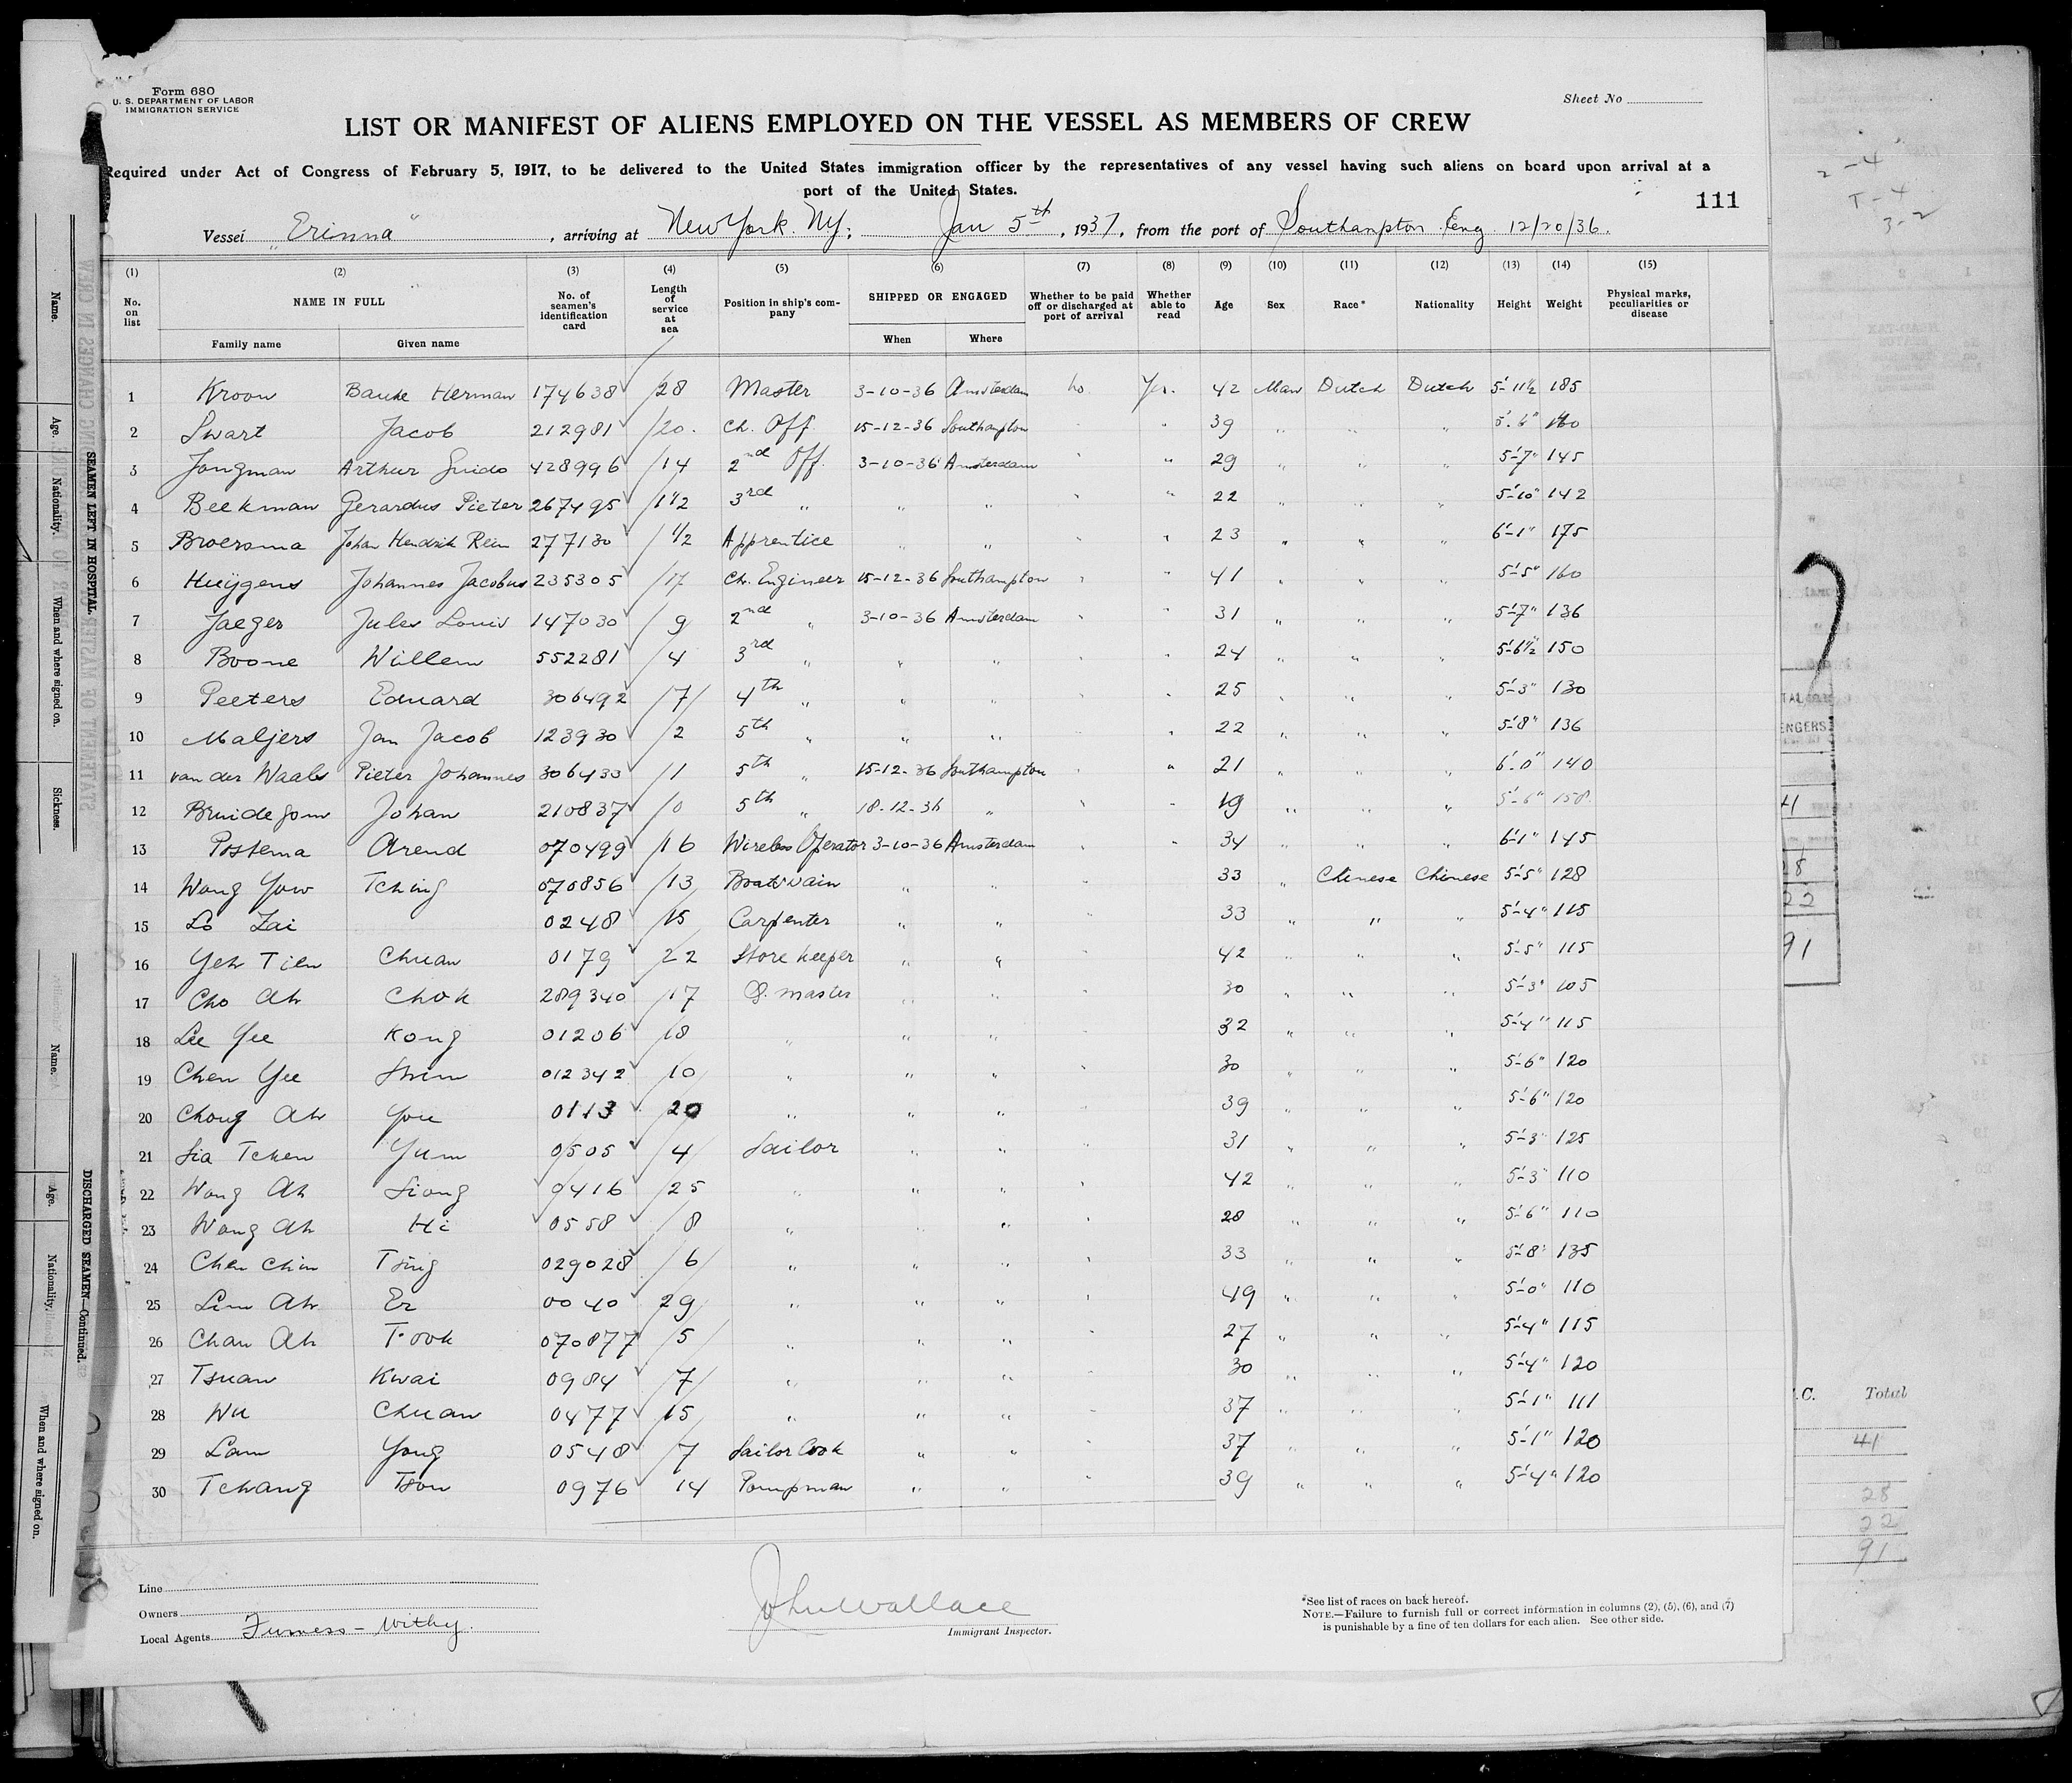 Form 680
U. S. DEPARTMENT OF LABOR
IMMIGRATION SERVICE
Sheet No
LIST OR MANIFEST OF ALIENS EMPLOYED ON THE VESSEL AS MEMBERS OF CREW
Required under Act of Congress of February 5, 1917, to be delivered to the United States immigration officer by the representatives of any vessel having such aliens on board upon arrival at a
port of the United States.
111
Vessel "Erinna", arriving at New York. Ny; Jan 5th, 1937, from the port of Southampton Eng 12/20/36.
(1) (2) (3) (4) (5) (6) (7) (8) (9) (10) (11) (12) (13) (14) (15)
No. on list NAME IN FULL No. of seamen's identification card Length of service at sea Position in ship's company SHIPPED OR ENGAGED Whether to be paid off or discharged at port of arrival Whether able to read Age Sex Race* Nationality Height Weight Physical marks, peculiarities or disease
Family name Given name When Where
1 Kroon Bauke Herman 174638 28 Master 3-10-36 Amsterdam no Yes. 42 Man Dutch Dutch 5'-11½ 185
2 Swart Jacob 212981 20. Ch. Off. 15-12-36 Southampton " " 39 " " " 5'-6" 160
3 Jongman Arthur Guido 428996 14 2nd Off. 3-10-36 Amsterdam " " 29 " " " 5'-7" 145
4 Beekman Gerardus Pieter 267495 1½ 3rd " " " " " 22 " " " 5'-10" 142
5 Broersma Johan Hendrik Rein 277130 ½ Apprentice " " " " 23 " " " 6'-1" 175
6 Huÿgens Johannes Jacobus 235305 17 Ch. Engineer 15-12-36 Southampton " " 41 " " " 5'-5" 160
7 Jaeger Jules Louis 147030 9 2nd " 3-10-36 Amsterdam " " 31 " " " 5'-7" 136
8 Boone Willem 552281 4 3rd " " " " " 24 " " " 5'-6½" 150
9 Peeters Eduard 306492 7 4th " " " " " 25 " " " 5'-3" 130
10 Maljers Jan Jacob 123930 2 5th " " " " " 22 " " " 5'-8" 136
11 van der Waals Pieter Johannes 306433 1 5th " 15-12-36 Southampton " " 21 " " " 6'-0" 140
12 Bruidegom Johan 210837 0 5th " 18-12-36 " " " 19 " " " 5'-6" 158
13 Postema Arend 070499 16 Wireless Operator 3-10-36 Amsterdam " " 34 " " " 6'-1" 145
14 Wong Yow Tching 070856 13 Boatswain " " " 33 " Chinese Chinese 5'-5" 128
15 Lo Zai 0248 15 Carpenter " " " 33 " " " 5'-4" 115
16 Yeh Tien Chuan 0179 22 Store keeper " " " 42 " " " 5'-5" 115
17 Cho Ah Chok 289340 17 Q. master " " " 30 " " " 5'-3" 105
18 Lee Yee Kong 01206 18 " " " " 32 " " " 5'-4" 115
19 Chen Yee Shim 012342 10 " " " " 30 " " " 5'-6" 120
20 Chong Ah You 0113 20 " " " " 39 " " " 5'-6" 120
21 Sia Tchen Yum 0505 4 Sailor " " " 31 " " " 5'-3" 125
22 Wong Ah Siong 0416 25 " " " " 42 " " " 5'-3" 110
23 Wong Ah Hi 0558 8 " " " " 28 " " " 5'-6" 110
24 Chen Chin Tsing 029028 6 " " " " 33 " " " 5'-8" 135
25 Lim Ah Er 0040 29 " " " " 49 " " " 5'-0" 110
26 Chan Ah Took 070877 5 " " " " 27 " " " 5'-4" 115
27 Tsuan Kwai 0984 7 " " " " 30 " " " 5'-4" 120
28 Wu Chuan 0477 15 " " " " 37 " " " 5'-1" 111
29 Lam Yong 0548 7 Sailor Cook " " " 37 " " " 5'-1" 120
30 Tchang Tson 0976 14 Pompman " " " 39 " " " 5'-4" 120
Line
Owners
Local Agents Furness-Withy.
John Wallace
Immigrant Inspector.
*See list of races on back hereof.
NOTE.—Failure to furnish full or correct information in columns (2), (5), (6), and (7)
is punishable by a fine of ten dollars for each alien. See other side.
Name.
Age.
Nationality.
When and where signed on.
Sickness.
SEAMEN LEFT IN HOSPITAL.
Name.
Age.
Nationality.
When and where signed on.
DISCHARGED SEAMEN—Continued.
2-4
T-4
3-2
41
28
22
91
.C. Total
41
28
22
91